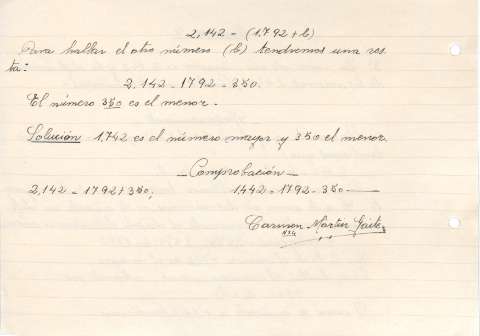 2,142 = (1.792 + b)
Para hallar el otro número (b) tendremos una res
ta:
2,142 - 1792 = 350.
El número 350 es el menor.
Solución 1.742 es el número mayor y 350 el menor.
Comprobación
2,142 = 1792 + 350; 1442 = 1792 - 350
Carmen Martin Gaite